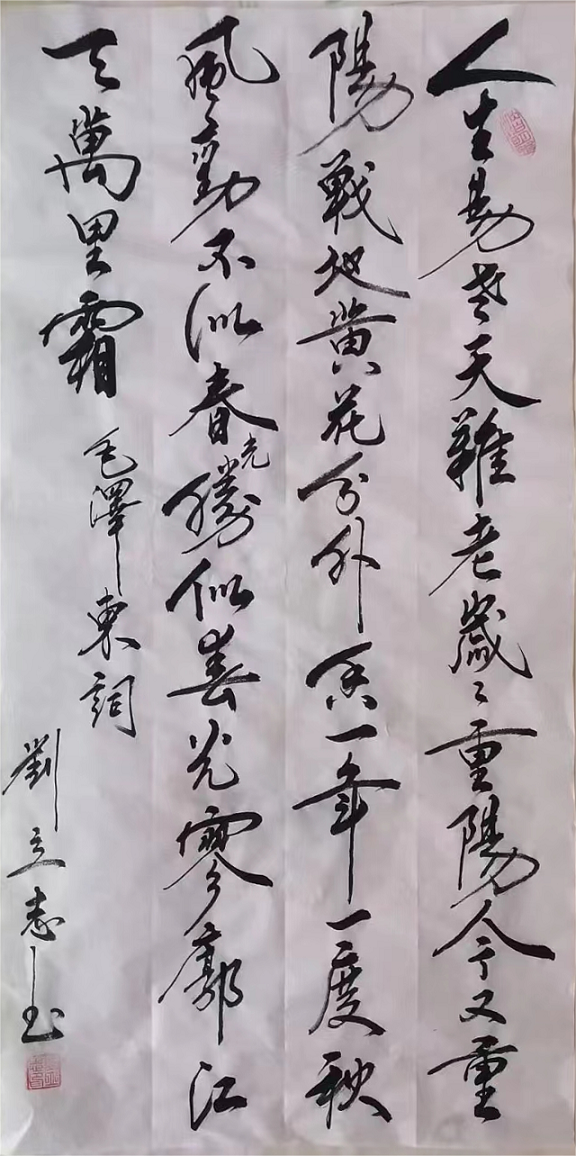 人生易老天難老歲々重陽今又重
陽戰地黄花分外香一年一度秋
風勁不似春光勝似春光寥廓江
天萬里霜
毛澤東詞
劉立志书